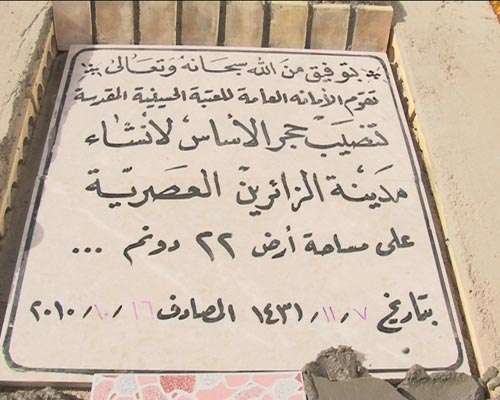 * بتوفيق من الله سبحانه وتعالى *
تقوم الأمانه العامة للعتبة الحسينية المقدسة
تنصيب حجر الأساس لأنشاء
مدينة الزائرين العصرية
على مساحة أرض ٢٢ دونم ...
بتاريخ ٧/١١/١٤٣١ المصادف ١٦/١٠/٢٠١٠